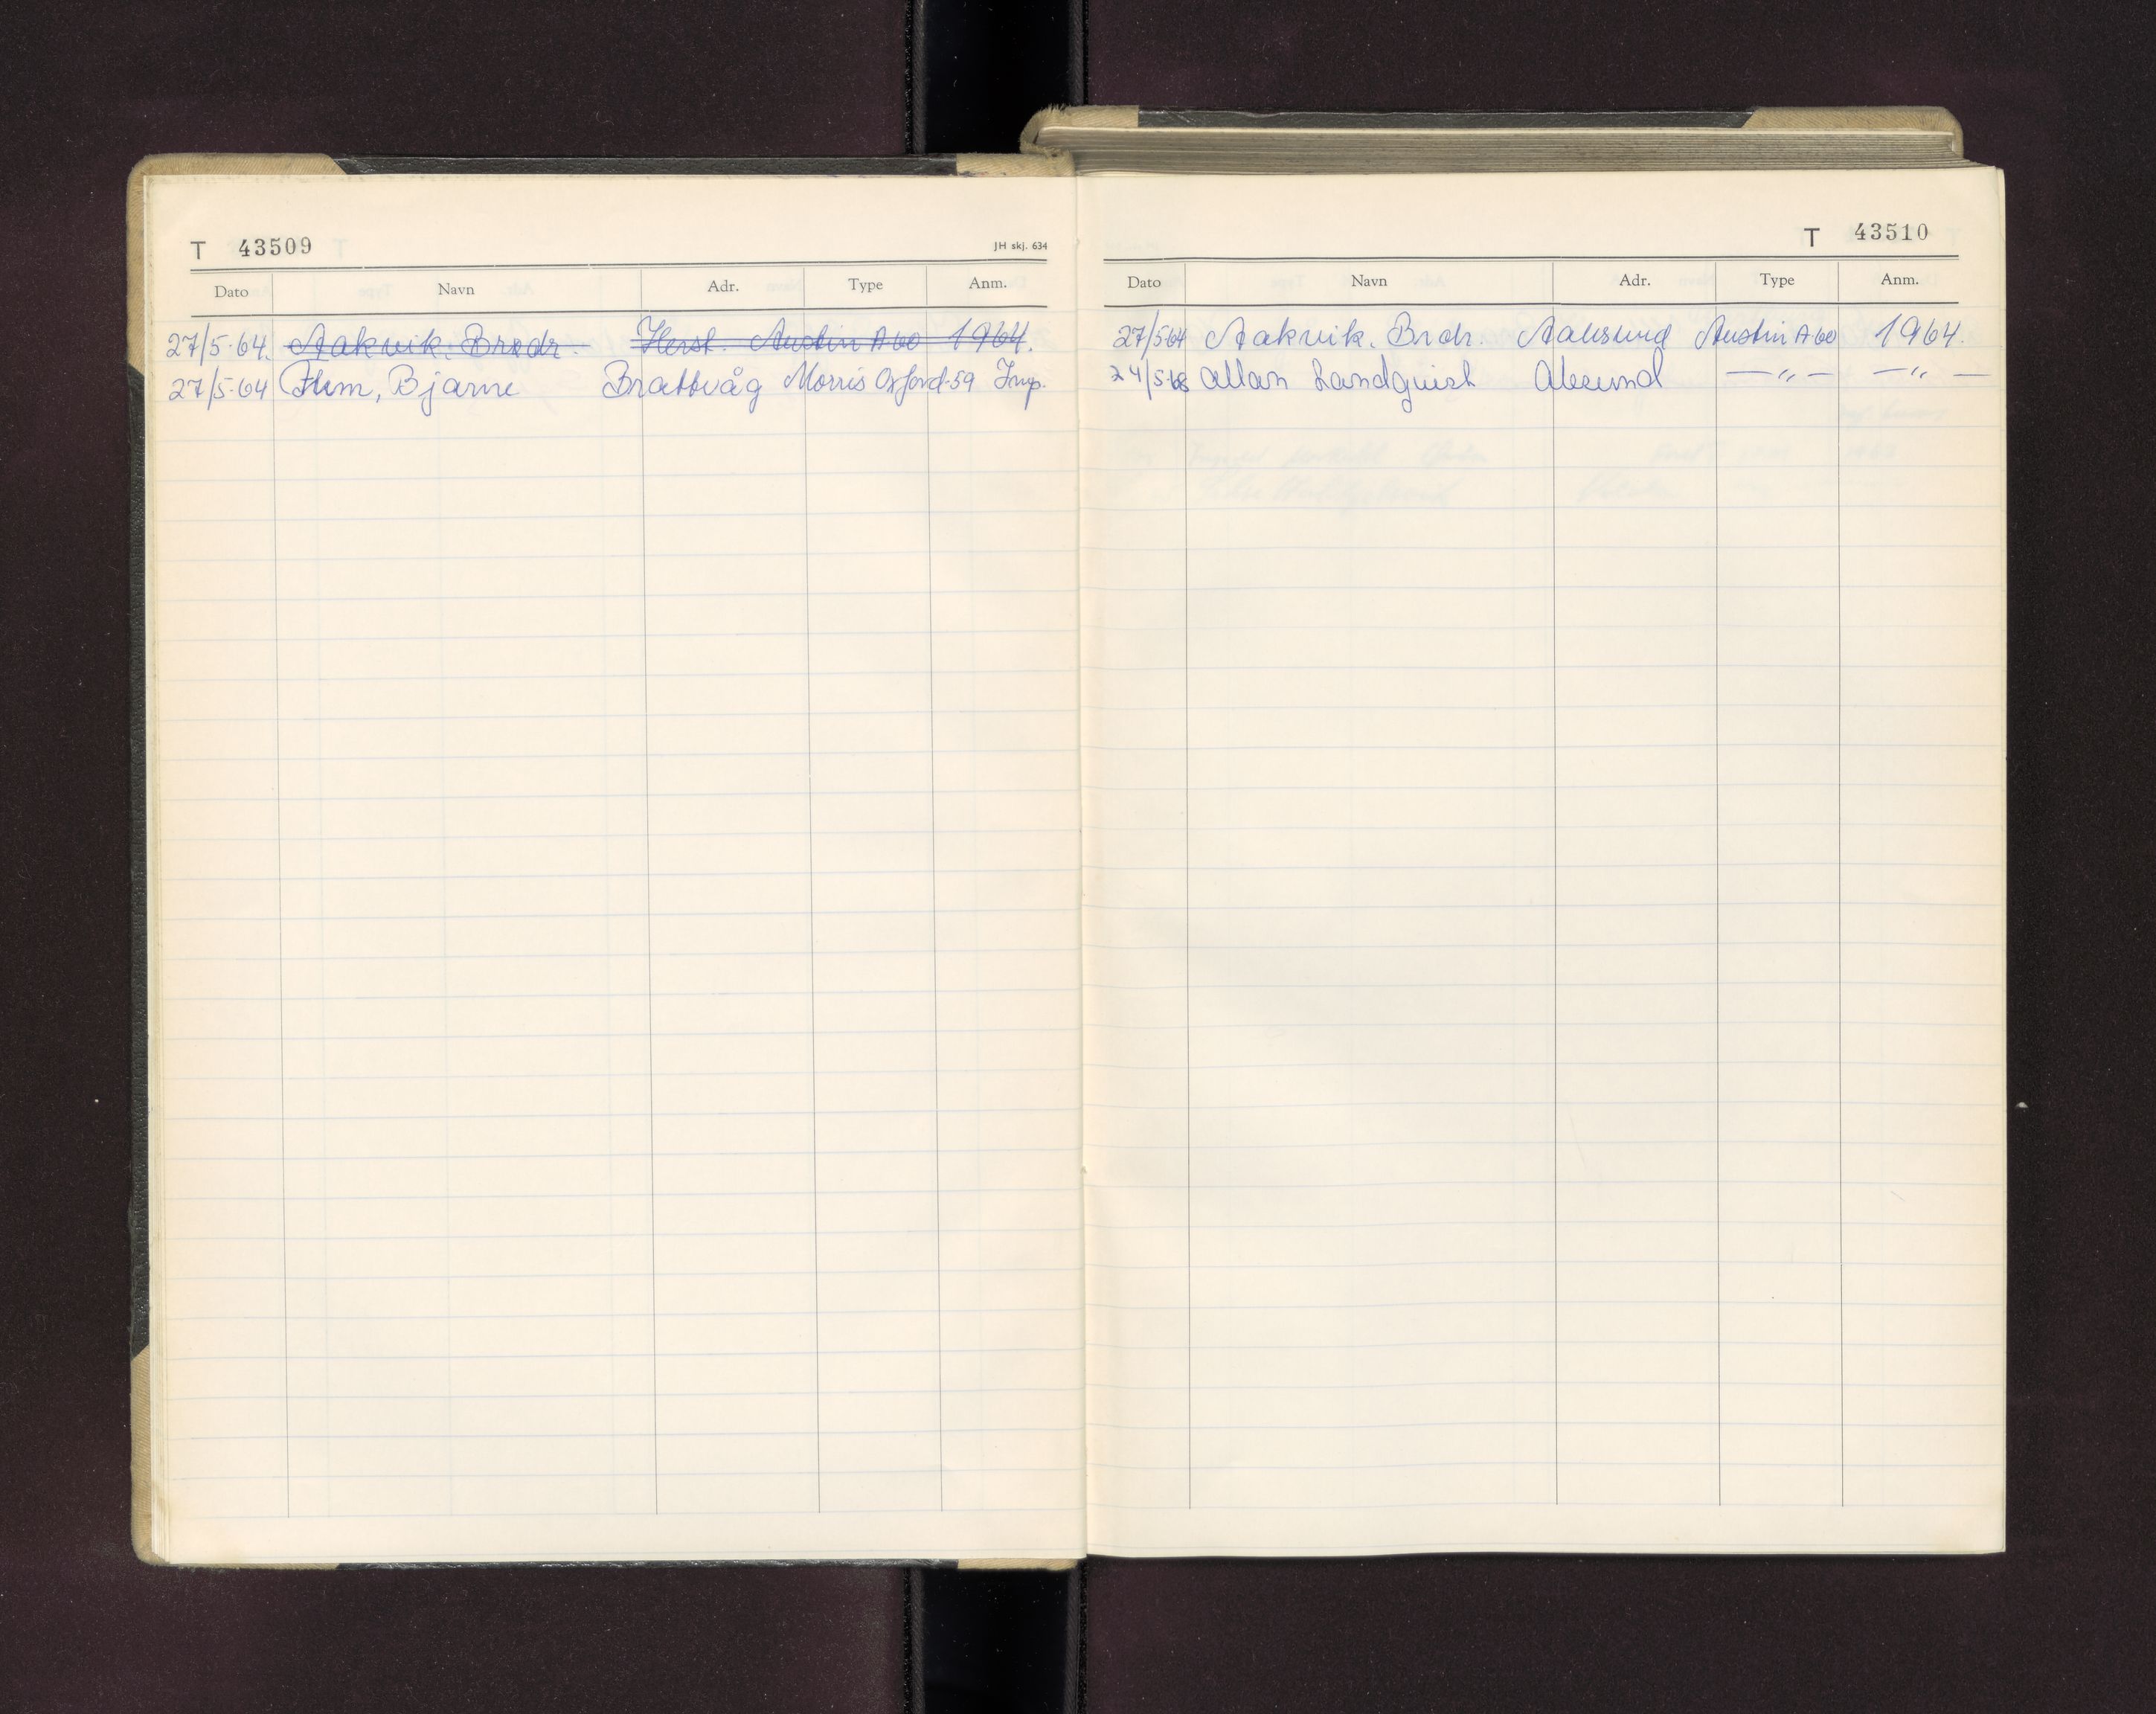 T 43509 JH skj. 634
Dato Navn Adr. Type Anm.
27/5-64. Aakvik, Brødr. Herst. Austin A60 1964.
27/5-64 Flem, Bjarne Brattvåg Morris Oxford-59 Imp.
T 43510
Dato Navn Adr. Type Anm.
27/5-64 Aakvik, Brdr. Aalesund Austin A60 1964.
24/5-68 Allan Landquist Ålesund —〃— —〃—